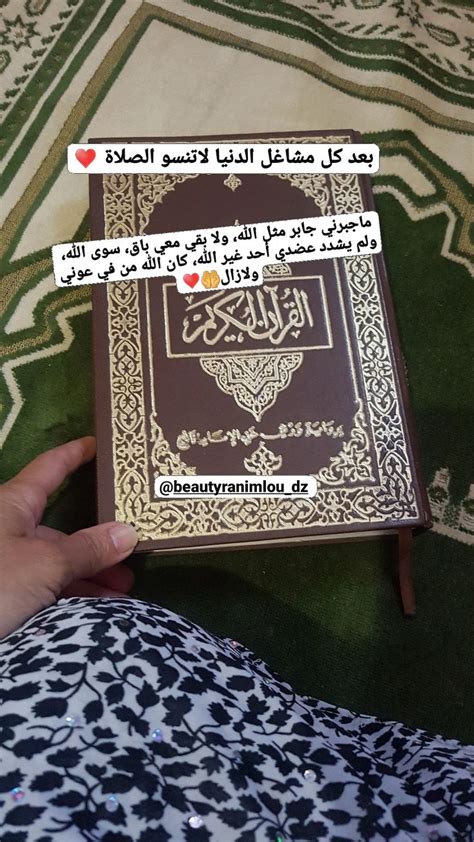 بعد كل مشاغل الدنيا لاتنسو الصلاة ❤️
ماجبرني جابر مثل الله، ولا بقي معي باق، سوى الله،
ولم يشدد عضدي أحد غير الله، كان الله من في عوني
ولازال🤲❤️
القرآن الكريم
@beautyranimlou_dz